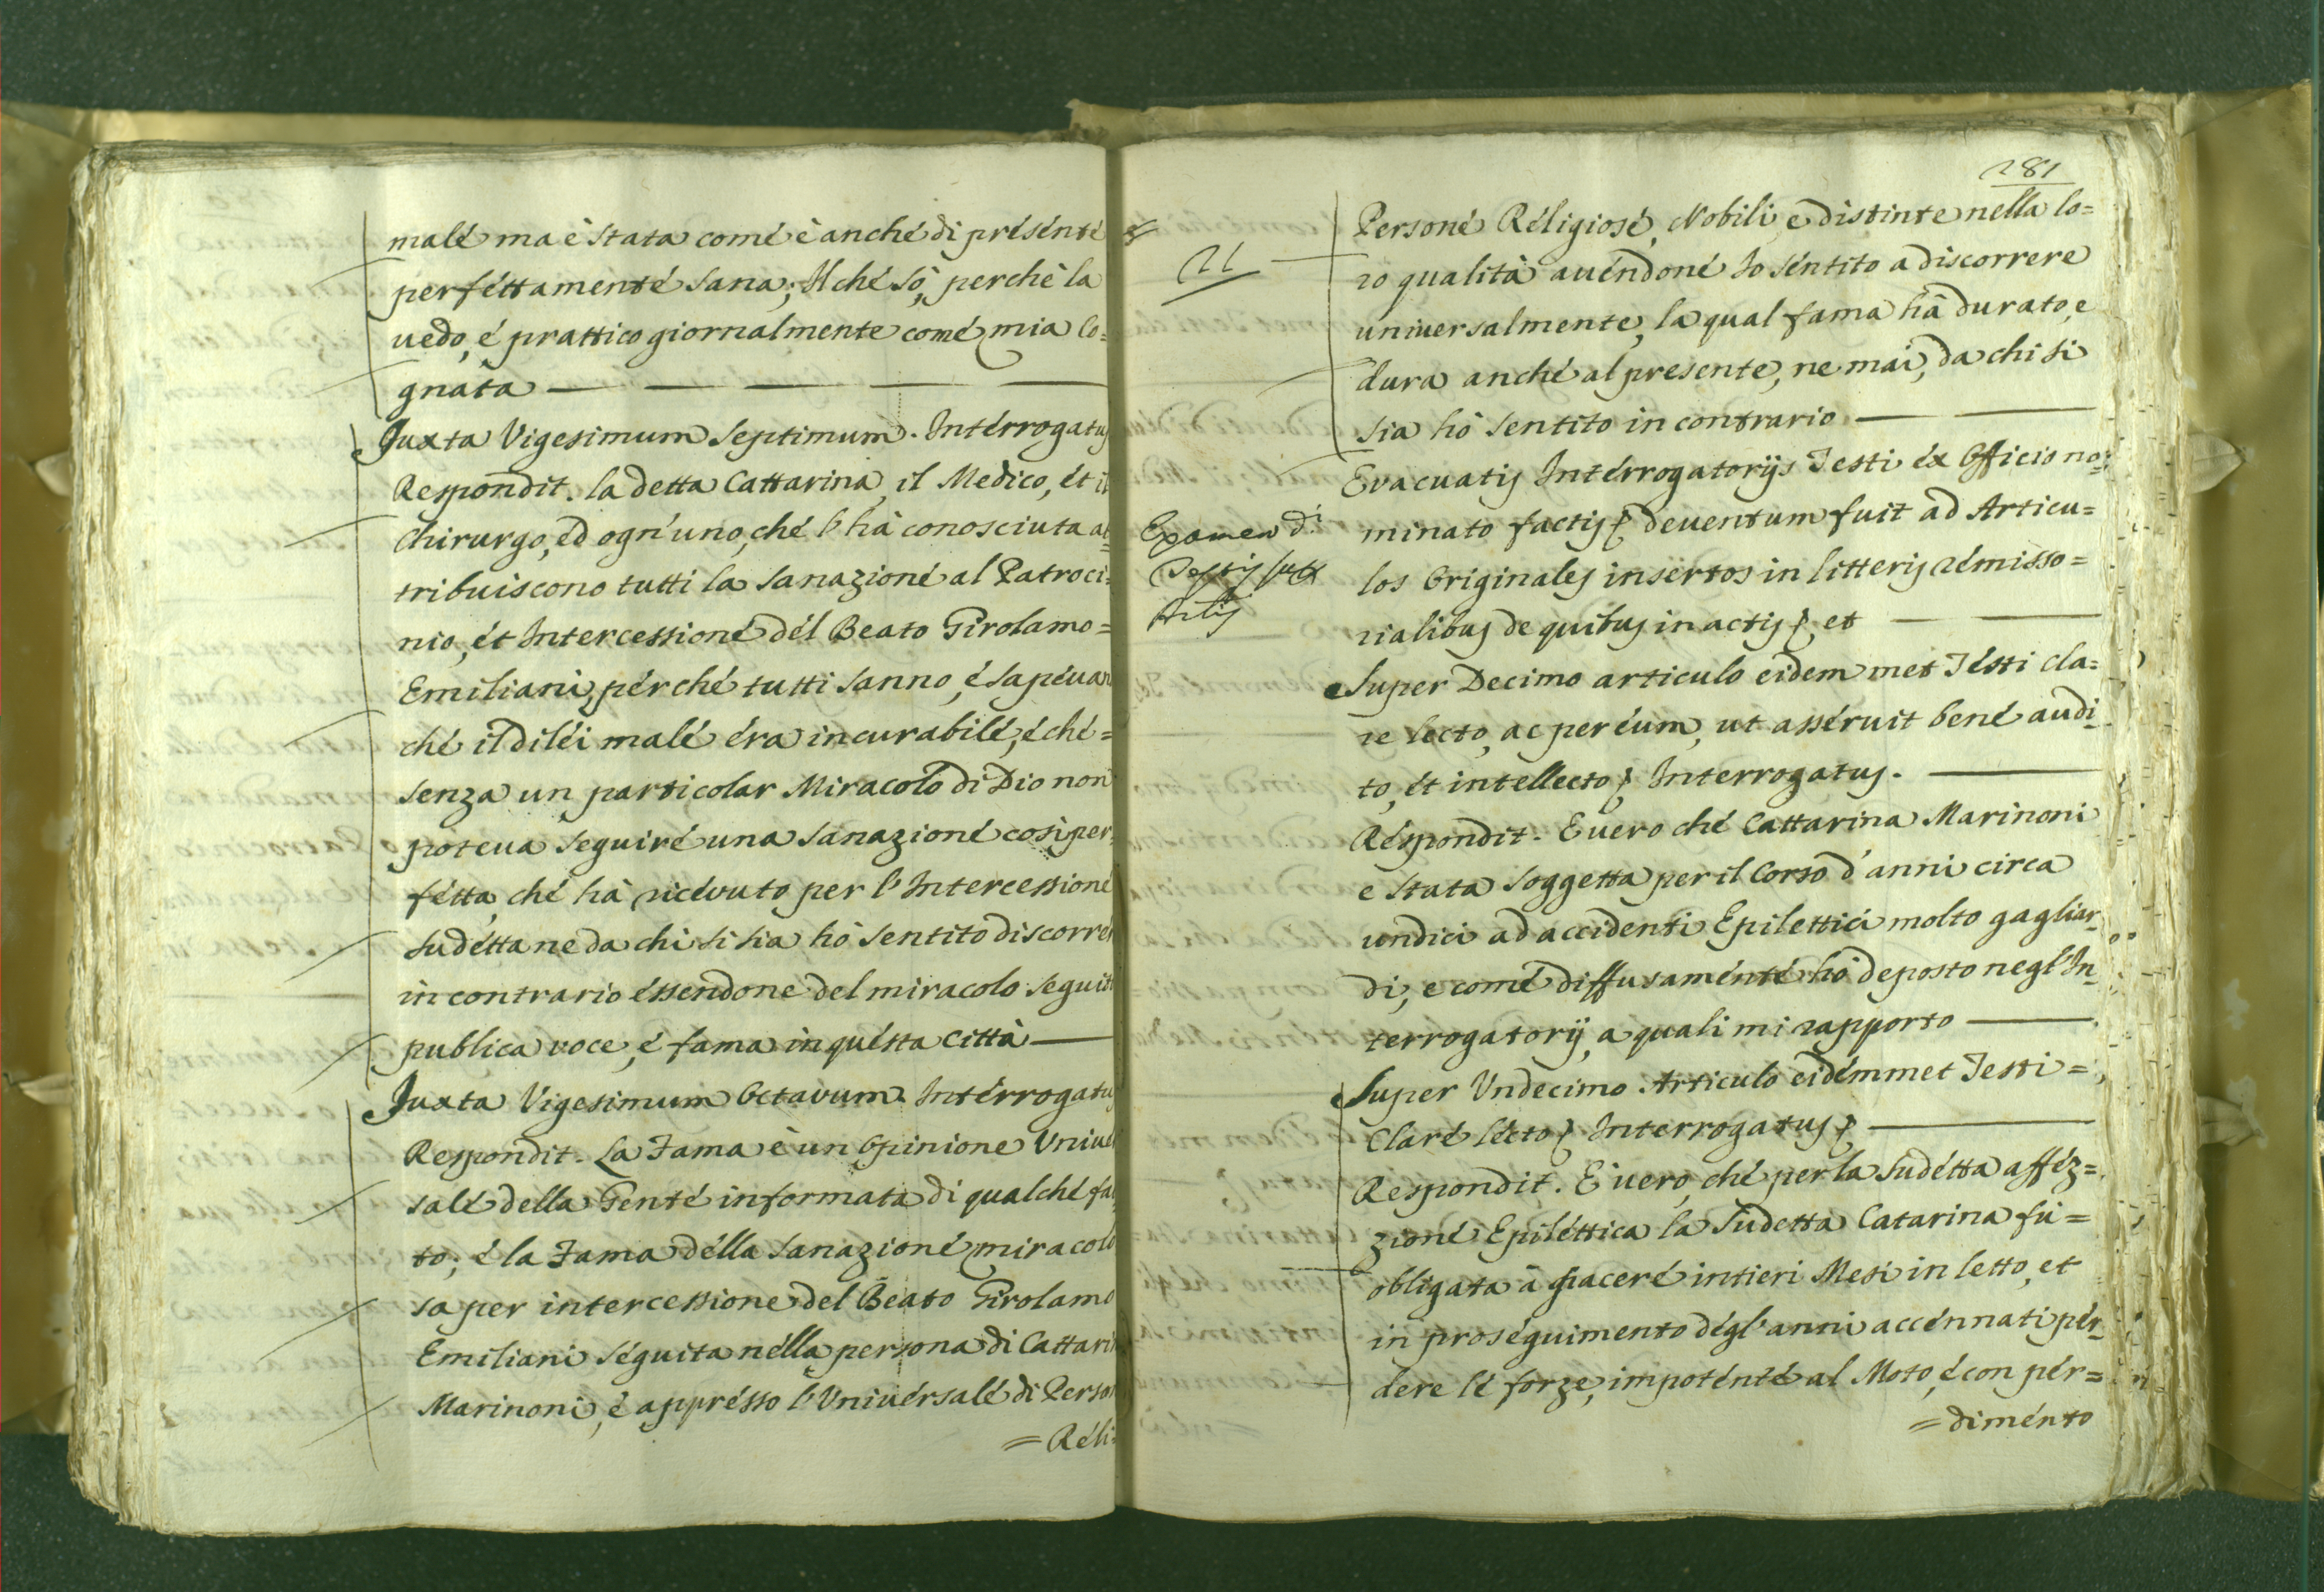 malé ma è stata comé è anché di présénté
perféttamenté sana; Il ché sò, perchè la
uedo, é prattico giornalmente comé mia Co=
gnàta
Juxta Vigesimum Septimum. Intérrogatus
Respondit. la detta Cattarina, il Medico, ét il
Chirurgo, ed ogn'uno, ché l'hà conosciuta at=
tribuiscono tutti la sanazioné al Patroci=
nio, ét Intercessioné dél Beato Girolamo=
Emiliani, pérché tutti sanno, é sapéuan
ché il di léi malé éra incurabilé, é ché=
senza un particolar Miracolo di Dio non
poteua seguiré una sanazioné così per=
fétta, ché hà ricéuuto per l'Intercessioné
sudétta ne da chi si sia hò sentito discorrér
in contrario éssendone del miracolo seguito
publica uoce, é fama in quésta Città
Juxta Vigesimum Octauum. Intérrogatus
Respondit. La Fama è un Opinione Uniuer
salé della Genté informata di qualché fat
to; é la Fama délla sanazioné miracolo
sa per intercessione del Beato Girolamo
Emiliani séguita nélla persona di Cattarin
Marinoni, é apprésso l'Uniuérsalé di Person
=Réli=
281
Personé Réligiosé, Nobili, e distinte nella lo=
ro qualità auéndoné Io séntito a discorrere
uniuersalmente, la qual fama hà durato, e
dura anché al presente, ne mai, da chi si
sia hò sentito in contrario
Evacuatis Intérrogatorijs Testi éx Officio no=
minato factis deuentum fuit ad Articu=
los Originales insértos in litteris rémisso=
rialibus de quibus in actis et
Super Decimo articulo eidem met Tésti cla=
re lecto, ac per éum, ut asséruit bené audi=
to, ét intellecto Interrogatus.
Réspondit. E uero ché Cattarina Marinoni
e stata soggetta per il Corso d'anni circa
undici ad accidenti Epilettici molto gagliar=
di, e comé diffusaménté hò deposto negl'In=
terrogatorij, a quali mi rapporto
Super Undecimo Articulo eidémmet Testi=
Claré lécto Interrogatus
Respondit. E' uero, ché per la sudétta afféz=
zioné Epiléttica la sudetta Catarina fù=
obligata à giaceré intieri Mesi in letto, et
in proséguimento dégl'anni accénnati pér=
dere lé forze, impoténté al Moto, é con pér=
=diménto
Examen di
Testis sup
Artis